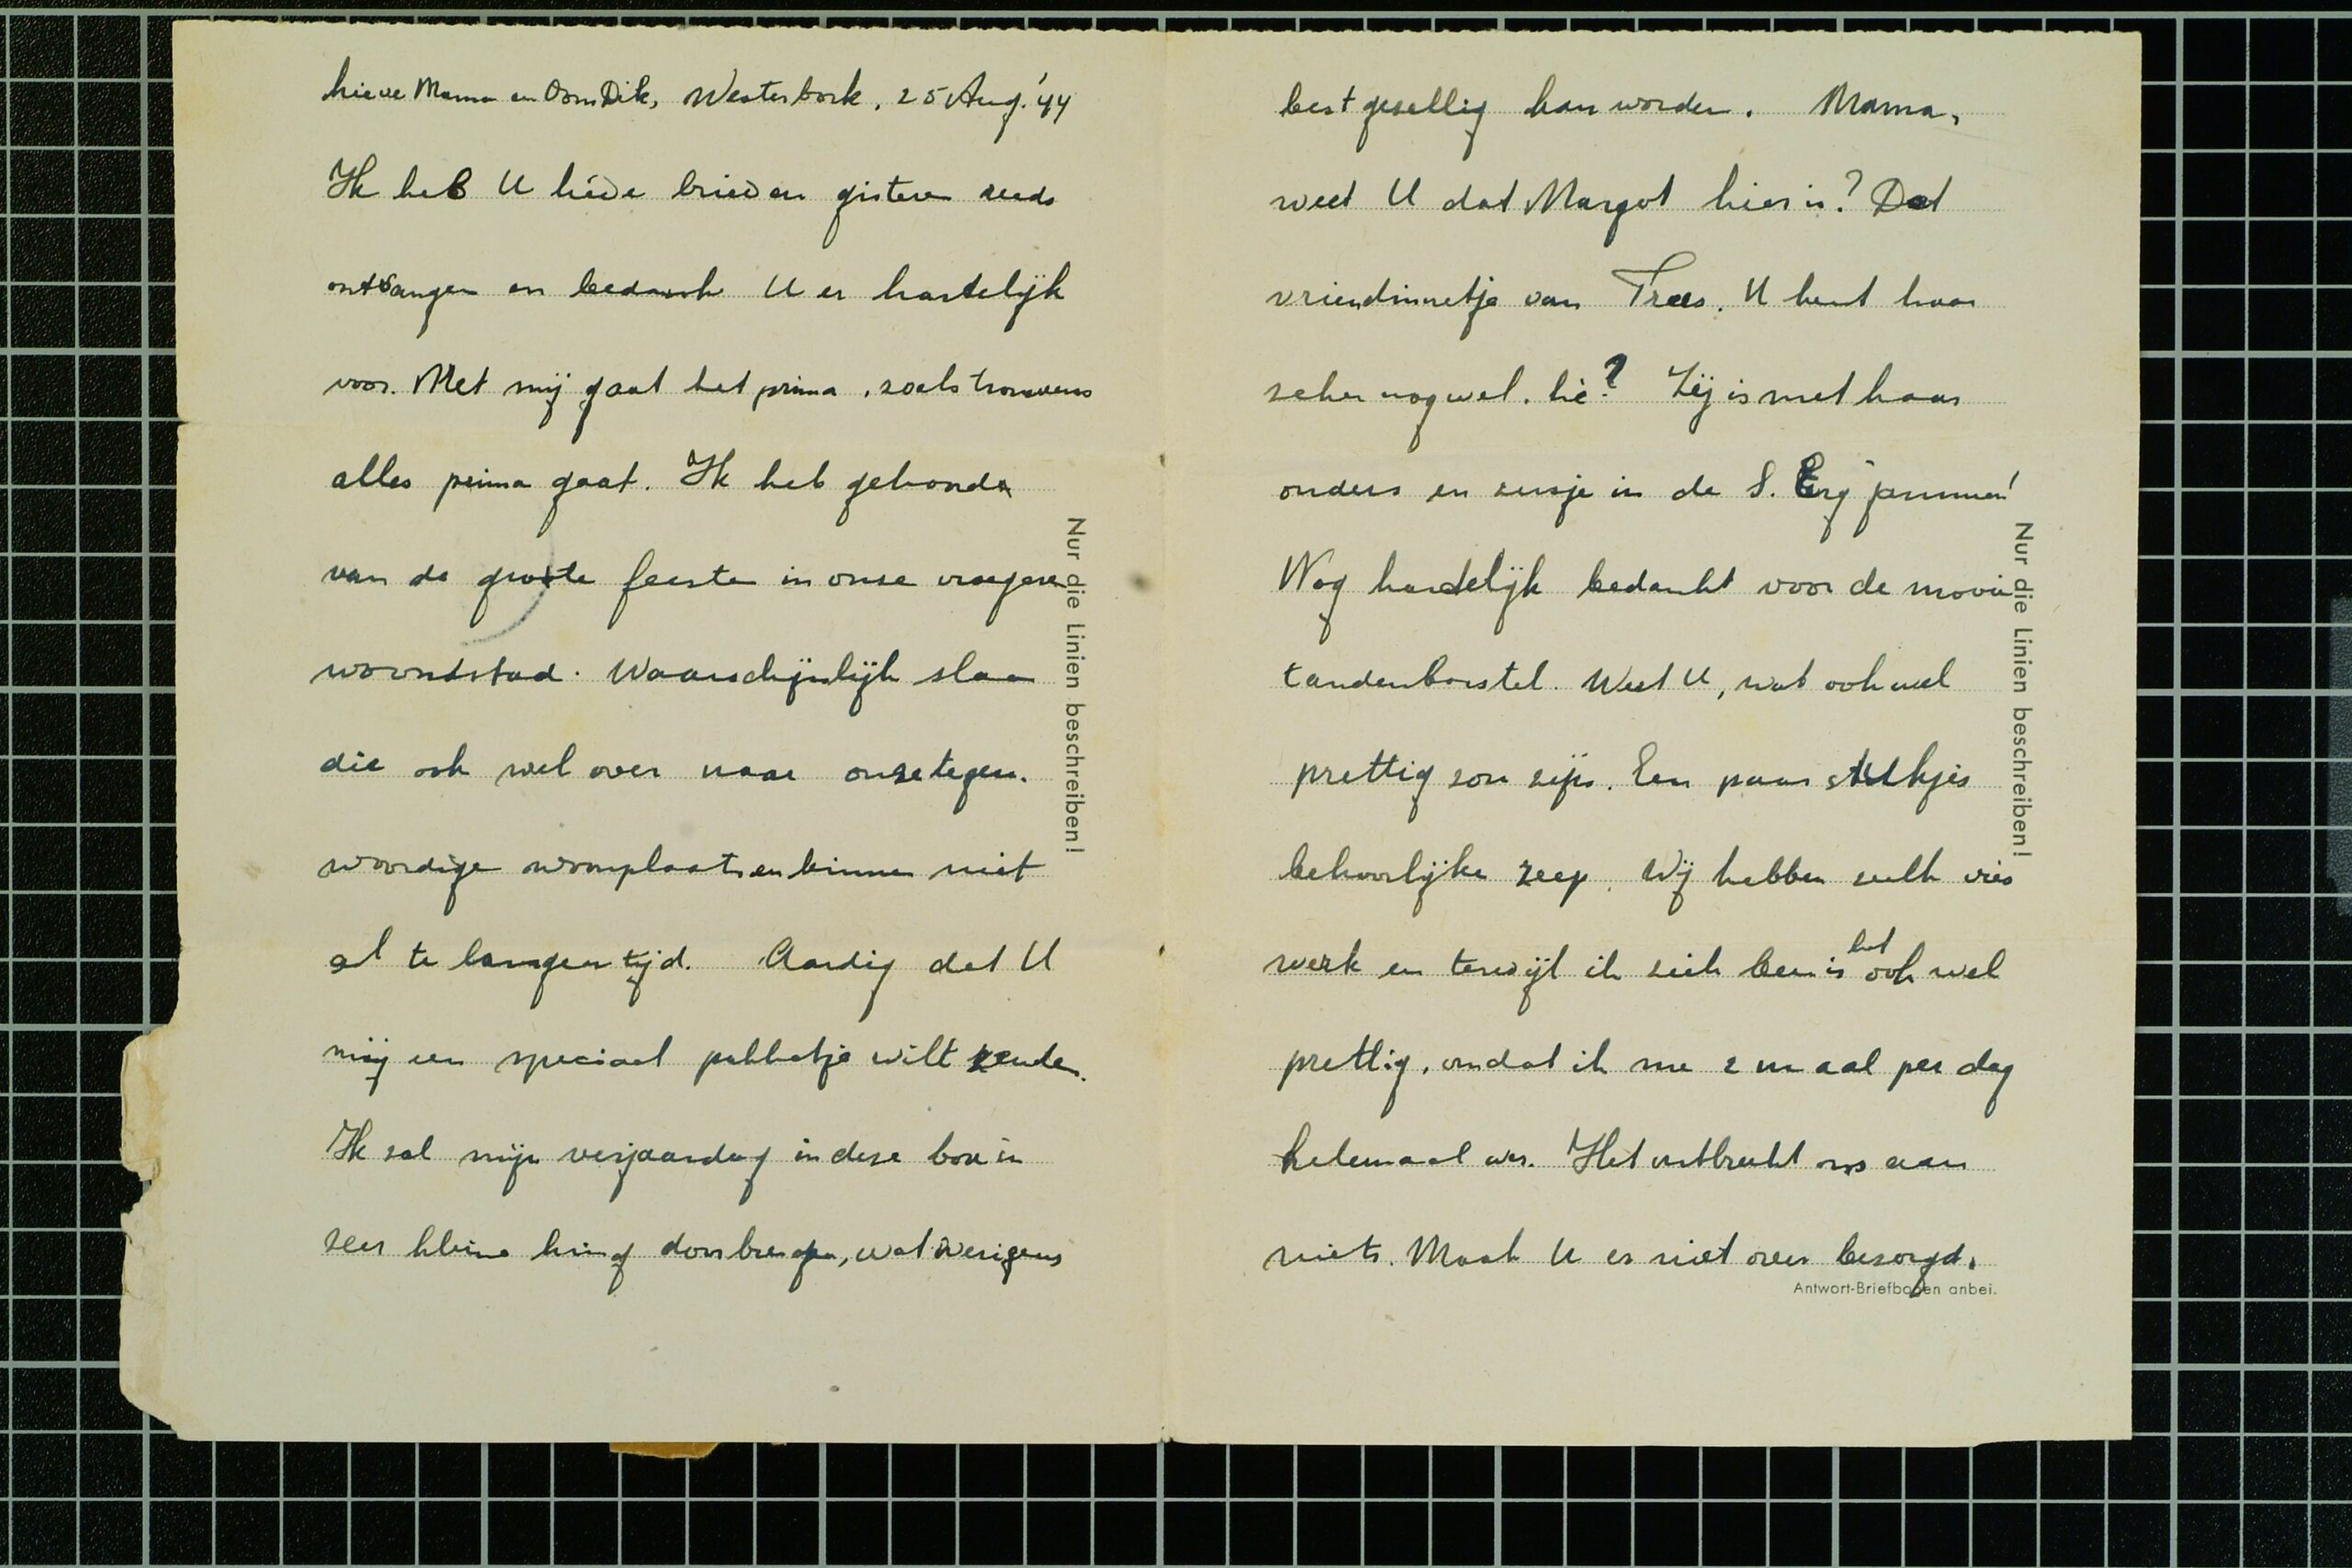 Lieve Mama en Oom Dik, Westerbork, 25 Aug. '44
Ik heb U lieve brieven gisteren reeds
ontvangen en bedank U er hartelijk
voor. Met mij gaat het prima, zoals trouwens
alles prima gaat. Ik heb gehoord
van de grote feesten in onze vroegere
woonstad. Waarschijnlijk slaan
die ook wel over naar onze tegen-
woordige woonplaats en binnen niet
al te langen tijd. Aardig dat U
mij een speciaal pakketje wilt zenden.
Ik zal mijn verjaardag in deze bou in
zeer kleine kring doorbrengen, wat overigens
Nur die Linien beschreiben!
best gezellig kan worden. Mama,
weet U dat Margot hier is? Dat
vriendinnetje van Trees. U kent haar
zeker nog wel. hè? Zij is met haar
ouders en zusje in de S. Erg jammer!
Nog hartelijk bedankt voor de mooie
tandenborstel. Weet U, wat ook wel
prettig zou zijn. Een paar stukjes
behoorlijke zeep. Wij hebben zulk vies
werk en terwijl ik ziek ben is het ook wel
prettig, omdat ik me 2 maal per dag
helemaal was. Het ontbreekt ons aan
niets. Maak U er niet over bezorgd.
Nur die Linien beschreiben!
Antwort-Briefbogen anbei.